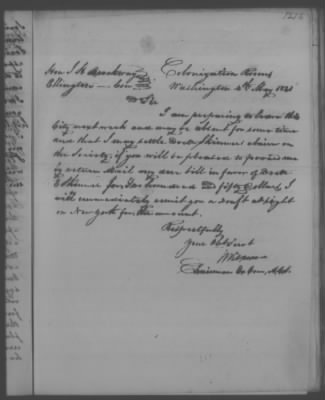 Colonization Rooms
Washington 4th May 1841
Ellington Con
Dr Sir
I am preparing to leave this
City next week and may be absent for some time
and that I may settle Doctr Skinners claim on
the Society, if you will be pleased to forward me
by return Mail any due bill in favor of Doctr
E Skinner for Two hundred and fifty Dollars, I
will immediately remit you a draft at sight
on New York for the amount.
Respectfully
your Obt Servt
Chairman Ex Com. A.C.S.